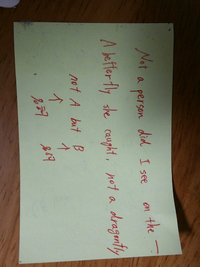 Not a person did I see on the —.
A betterfly she caught, not a dragonfly
not A but B
↑ ↑